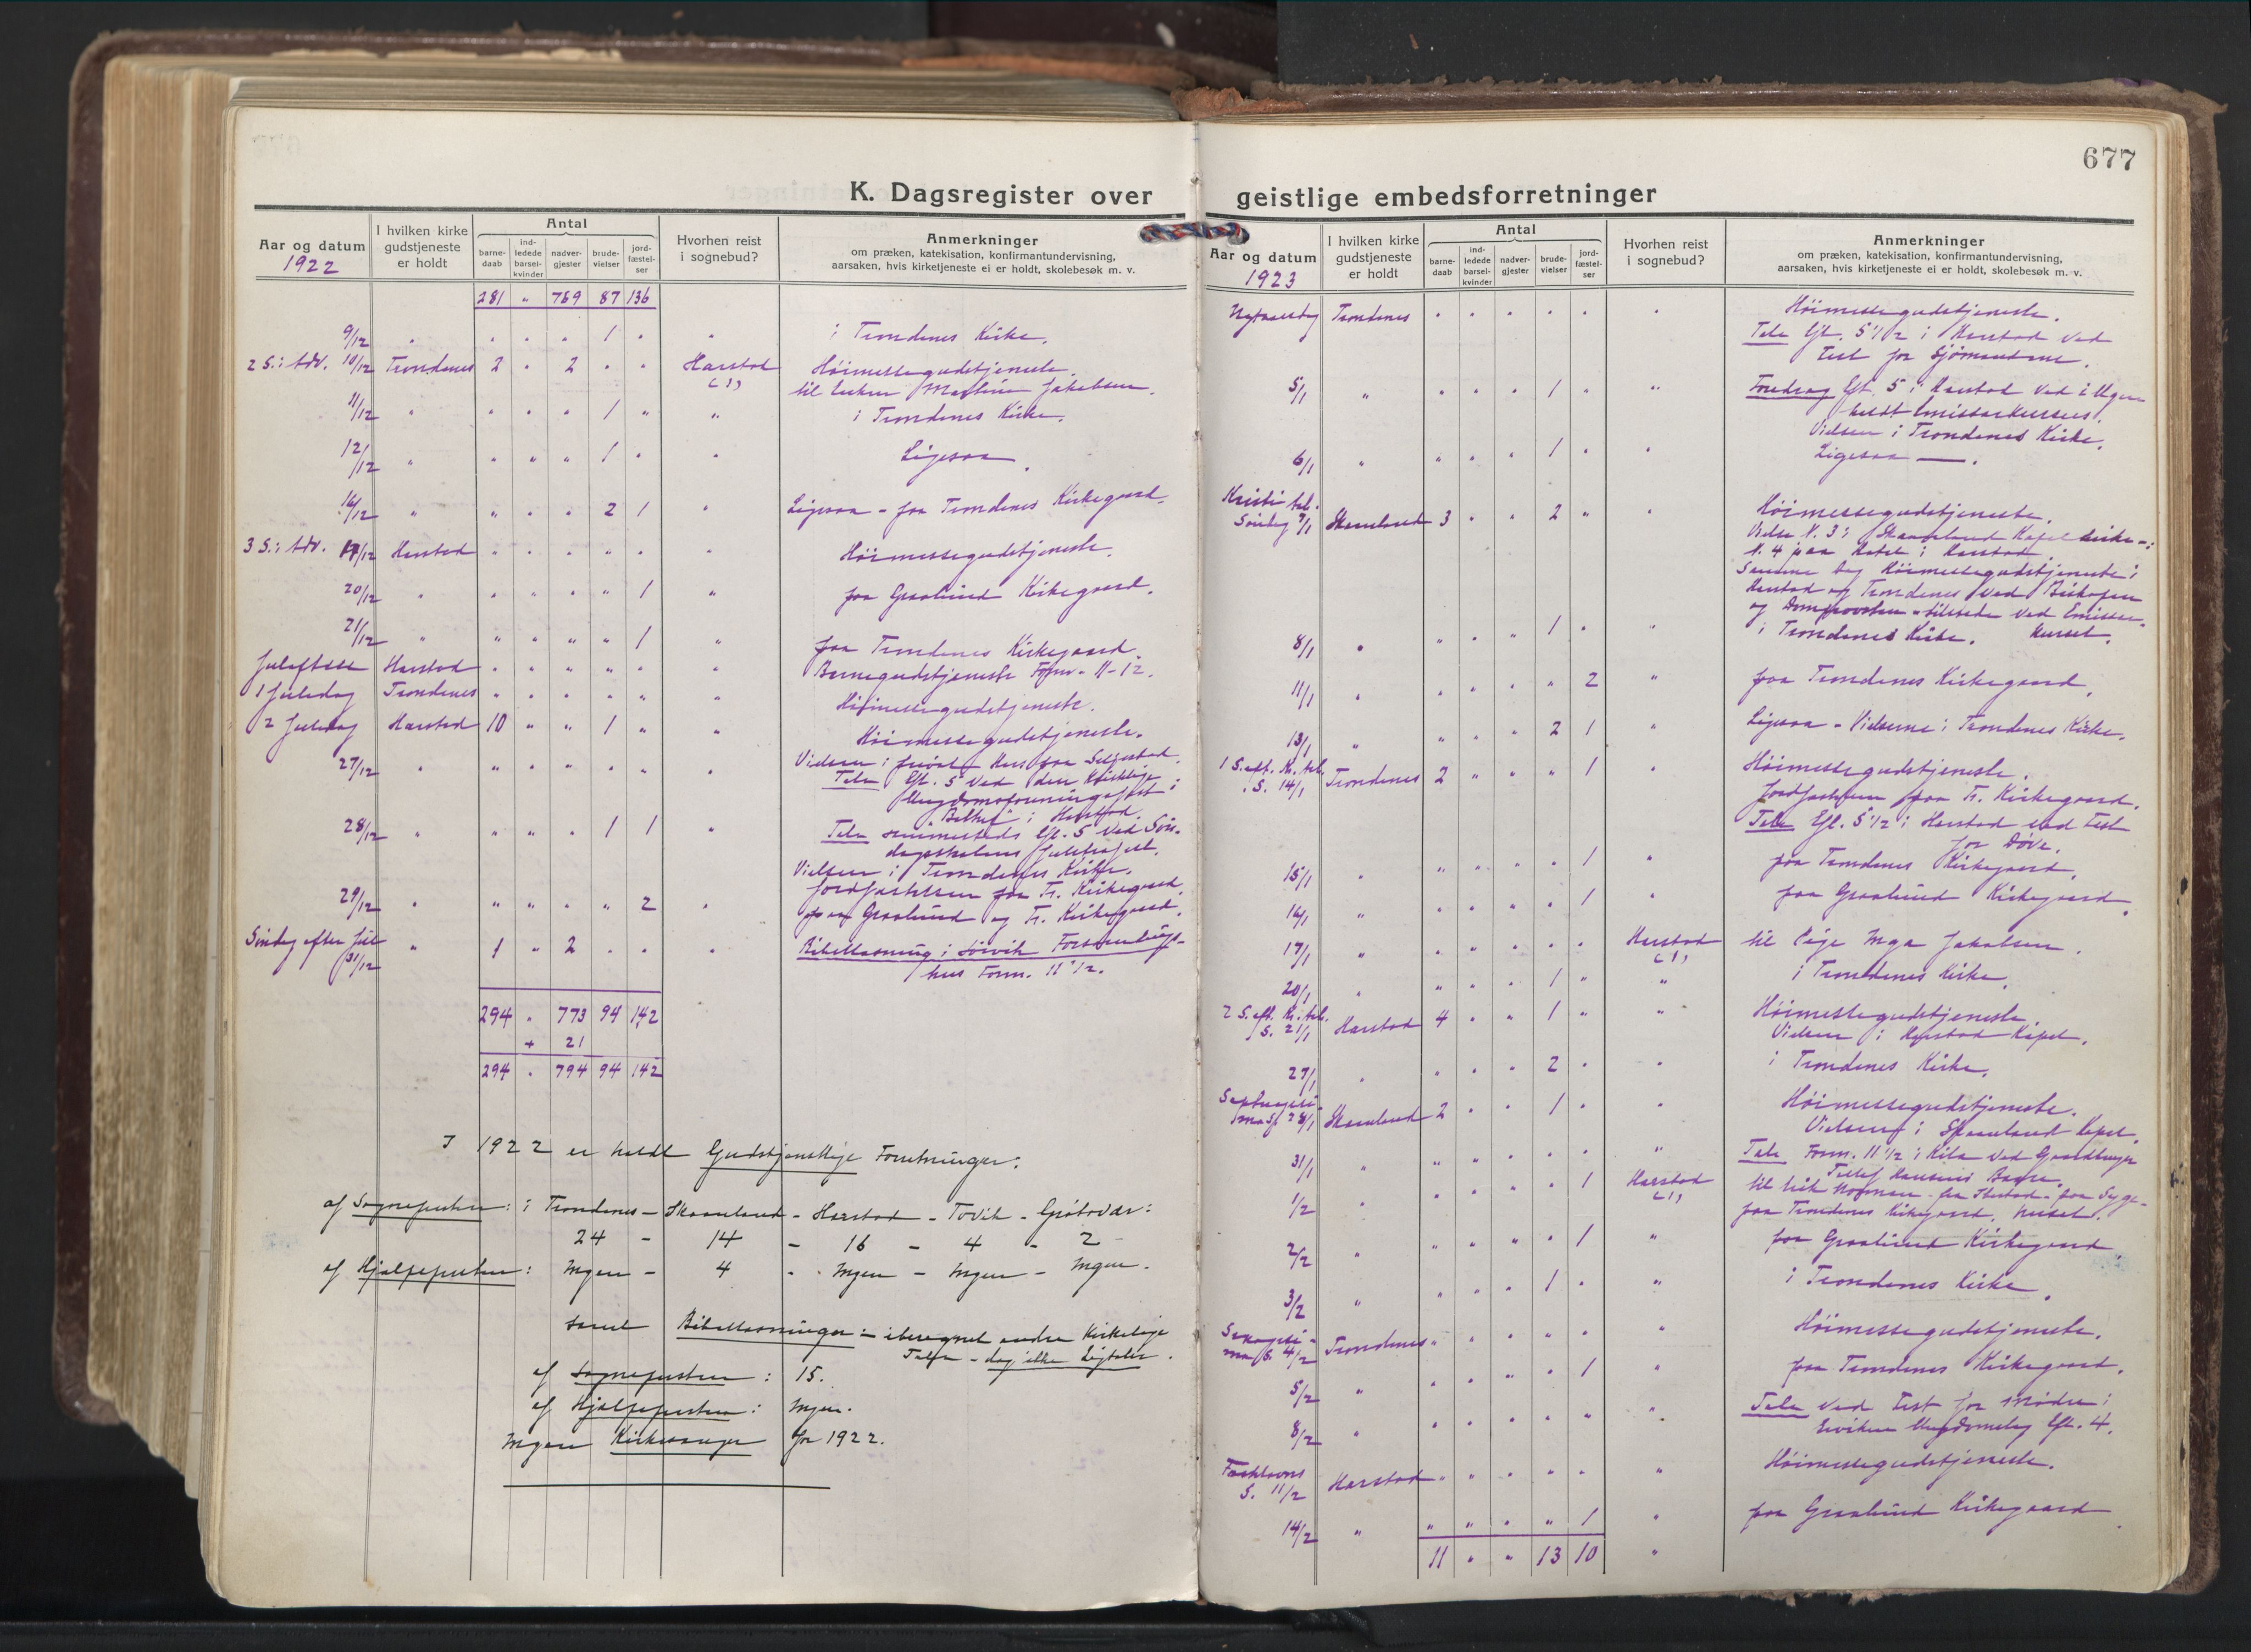 677
K. Dagsregister over geistlige embedsforretninger
Aar og datum
1922
I hvilken kirke gudstjeneste er holdt
Antal
barne-daab
ind-ledede barsel-kvinder
nadver-gjester
brude-vielser
jord-fæstel-ser
Hvorhen reist i sognebud?
Anmerkninger
om præken, katekisation, konfirmantundervisning,
aarsaken, hvis kirketjeneste ei er holdt, skolebesøk m. v.
281 " 769 87 136
9/12 " " " " 1 " " i Trondenes Kirke.
2 S. i Adv. 10/12 Trondenes 2 " 2 " " Harstad Høimessegudstjeneste.
(1) til Jakobsen.
11/12 " " " " 1 " " i Trondenes Kirke.
12/12 " " " " 1 " " Ligesaa.
16/12 " " " " 2 1 " Ligesaa - paa Trondenes Kirkegaard.
3 S. i Adv. 17/12 Harstad " " " " " " Høimessegudstjeneste.
20/12 " " " " " 1 " paa Graalund Kirkegaard.
21/12 " " " " " 1 " paa Trondenes Kirkegaard.
Juleaften Harstad " " " " " " Barnegudstjeneste Form. 11-12.
1 Juledag Trondenes " " " " " " Høimessegudstjeneste.
2 Juledag Harstad 10 " " 1 " " Høimessegudstjeneste.
Vielsen i privat Hus paa
27/12 " " " " " " " Tale Eft. 5 ved den Kristelige
Ungdomsforenings Fest i
i Harstad.
28/12 " " " " 1 1 " Tale sammesteds Eft. 5 ved Søn-
dagsskolens Juletræfest.
Vielsen i Trondenes Kirke.
Jordfæstelsen paa Tr. Kirkegaard.
29/12 " " " " " 2 " paa Graalund og Tr. Kirkegaard.
Søndag efter Jul 31/12 " 1 " 2 " " " Bibellæsning i Sørvik Forsamlings-
hus Form. 11 1/2.
294 " 773 94 142
+ 21
294 " 794 94 142
I 1922 er holdt Gudstjenstlige Forretninger:
af Sognepresten: i Trondenes - Skaanland - Harstad - Tovik - Grøtavær:
24 - 14 - 16 - 4 - 2
af Hjælpepresten: Ingen - 4 - Ingen - Ingen - Ingen.
samt Bibellæsninger: - iberegnet andre Kirkelige
Taler - dog ikke Ligtaler.
af Sognepresten: 15.
af Hjælpepresten: Ingen.
Ingen Kirkesanger for 1922.
Aar og datum
1923
I hvilken kirke gudstjeneste er holdt
Antal
barne-daab
ind-ledede barsel-kvinder
nadver-gjester
brude-vielser
jord-fæstel-ser
Hvorhen reist i sognebud?
Anmerkninger
om præken, katekisation, konfirmantundervisning,
aarsaken, hvis kirketjeneste ei er holdt, skolebesøk m. v.
Nytaarsdag Trondenes " " " " " " Høimessegudstjeneste.
Tale Eft. 5 1/2 i Harstad ved
Fest for Sjømændene.
5/1 " " " " 1 " " Foredrag Eft. 5 i Harstad ved
holdt Emissærkursus.
Vielsen i Trondenes Kirke.
6/1 " " " " 1 " " Ligesaa —.
Kristi Aab. Søndag 7/1 Skaanland 3 " " 2 " " Høimessegudstjeneste.
Vielse N. 3 i Skaanland Kapel
N. 4 paa Hotel i Harstad.
Samme Dag Høimessegudstjeneste i
Harstad og Trondenes ved Biskopen
og Domprovsten - tilstede ved Emissær-
kurset.
8/1 " " " " 1 " " i Trondenes Kirke.
11/1 " " " " " 2 " paa Trondenes Kirkegaard.
13/1 " " " " 2 1 " Ligesaa - Vielserne i Trondenes Kirke.
1 S. eft. Kr. Aab. S. 14/1 Trondenes 2 " " " 1 " Høimessegudstjeneste.
Jordfæstelsen paa Tr. Kirkegaard.
Tale Eft. 5 1/2 i Harstad ved Fest
for Døve.
15/1 " " " " " 1 " paa Trondenes Kirkegaard.
16/1 " " " " " 1 " paa Graalund Kirkegaard.
17/1 " " " " " " Harstad (1) til Pige Inga Jakobsen.
20/1 " " " " 1 " " i Trondenes Kirke.
2 S. eft. Kr. Aab. S. 21/1 Harstad 4 " " 1 " " Høimessegudstjeneste.
Vielsen i Harstad Kapel.
27/1 " " " " 2 " " i Trondenes Kirke.
Septuagesi-ma S. 28/1 Skaanland 2 " " 1 " " Høimessegudstjeneste.
Vielsen i Skaanland Kapel.
31/1 " " " " " " " Tale Form. 11 1/2 i Kila ved
Hansens Baare.
1/2 " " " " " 1 Harstad (1) til - fra - paa Syge-
huset.
paa Trondenes Kirkegaard.
2/2 " " " " " 1 " paa Graalund Kirkegaard.
3/2 " " " " 1 " " i Trondenes Kirke.
Sexagesi-ma S. 4/2 Trondenes " " " " " " Høimessegudstjeneste.
5/2 " " " " " 1 " paa Trondenes Kirkegaard.
8/2 " " " " " " " Tale ved Fest for Mødre i
Ungdomslag Eft. 4.
Fastelavns S. 11/2 Harstad " " " " " " Høimessegudstjeneste.
14/2 " " " " " 1 " paa Graalund Kirkegaard.
11 " " 13 10 "